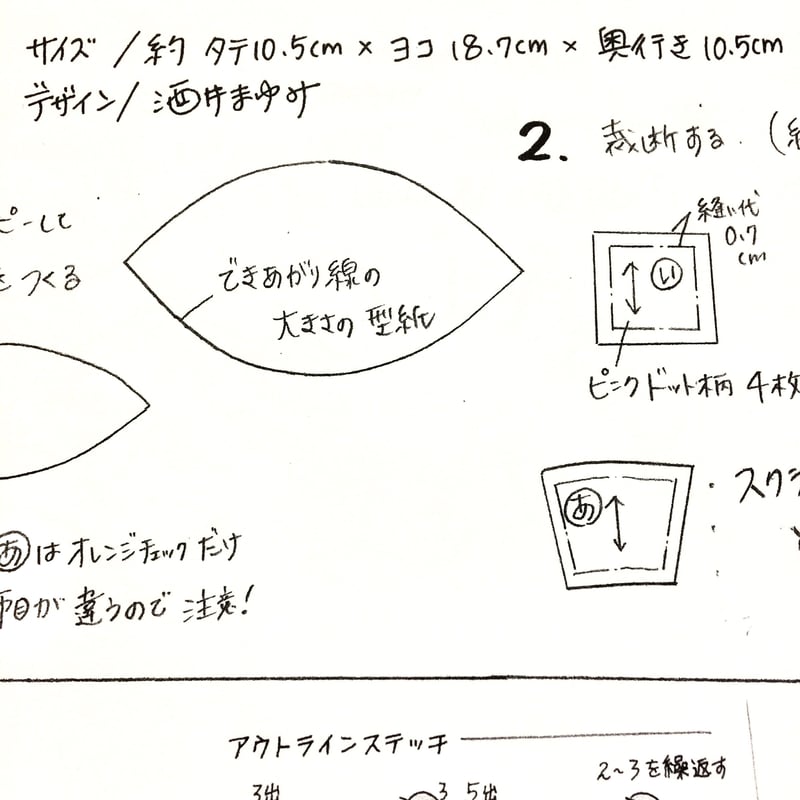 サイズ／約 タテ10.5cm × ヨコ 18.7cm × 奥行き 10.5cm
デザイン／酒井まゆみ
2. 裁断する (
ピーして
をつくる
できあがり線の
大きさの 型紙
縫い代
0.7
cm
い
ピンクドット柄 4枚
あ
スクラ
あはオレンジチェックだけ
布目が違うので 注意!
アウトラインステッチ
3出
3 5出
2〜3を繰返す